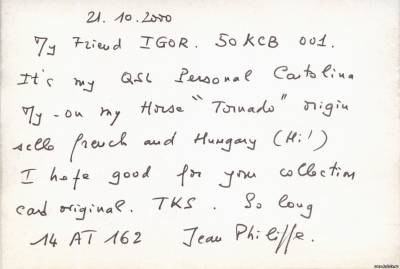 21.10.2000
My Friend IGOR. 50 KCB 001.
It's my QSL Personal Cartolina
My - on my Horse "Tornado" origin
sello french and Hungary (Hi!)
I hope good for your collection
card original. TKS. So long
14 AT 162 Jean Philiffe.